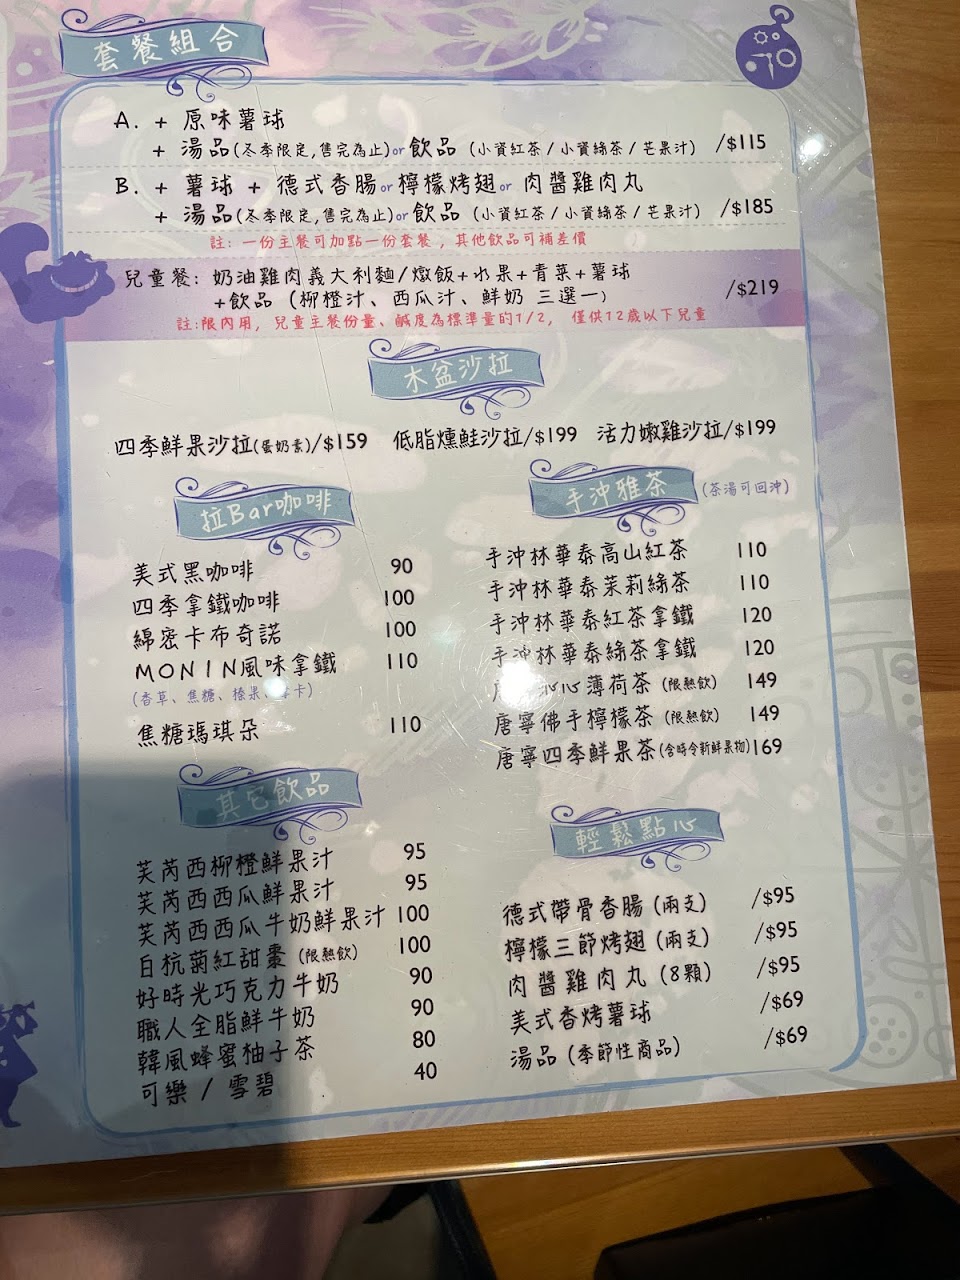 套餐組合
A. + 原味薯球
+ 湯品(冬季限定,售完為止)or飲品 (小資紅茶/小資綠茶/芒果汁) /$115
B. + 薯球 + 德式香腸or檸檬烤翅or 肉醬雞肉丸
+ 湯品(冬季限定,售完為止)or飲品 (小資紅茶/小資綠茶/芒果汁) /$185
註: 一份主餐可加點一份套餐,其他飲品可補差價
兒童餐: 奶油雞肉義大利麵/燉飯+水果+青菜+薯球
+飲品 (柳橙汁、西瓜汁、鮮奶 三選一) /$219
註:限內用, 兒童主餐份量、鹹度為標準量的1/2, 僅供12歲以下兒童
木盆沙拉
四季鮮果沙拉(蛋奶素)/$159 低脂燻鮭沙拉/$199 活力嫩雞沙拉/$199
拉Bar咖啡
美式黑咖啡 90
四季拿鐵咖啡 100
綿密卡布奇諾 100
MONIN風味拿鐵 110
(香草、焦糖、榛果 卡)
焦糖瑪琪朵 110
手沖雅茶 (茶湯可回沖)
手沖林華泰高山紅茶 110
手沖林華泰茉莉綠茶 110
手沖林華泰紅茶拿鐵 120
手沖林華泰綠茶拿鐵 120
心薄荷茶 (限熱飲) 149
唐寧佛手檸檬茶 (限熱飲) 149
唐寧四季鮮果茶(含時令新鮮果物)169
其它飲品
芙芮西柳橙鮮果汁 95
芙芮西西瓜鮮果汁 95
芙芮西西瓜牛奶鮮果汁 100
白杭菊紅甜棗 (限熱飲) 100
好時光巧克力牛奶 90
職人全脂鮮牛奶 90
韓風蜂蜜柚子茶 80
可樂 / 雪碧 40
輕鬆點心
德式帶骨香腸 (兩支) /$95
檸檬三節烤翅 (兩支) /$95
肉醬雞肉丸 (8顆) /$95
美式香烤薯球 /$69
湯品 (季節性商品) /$69